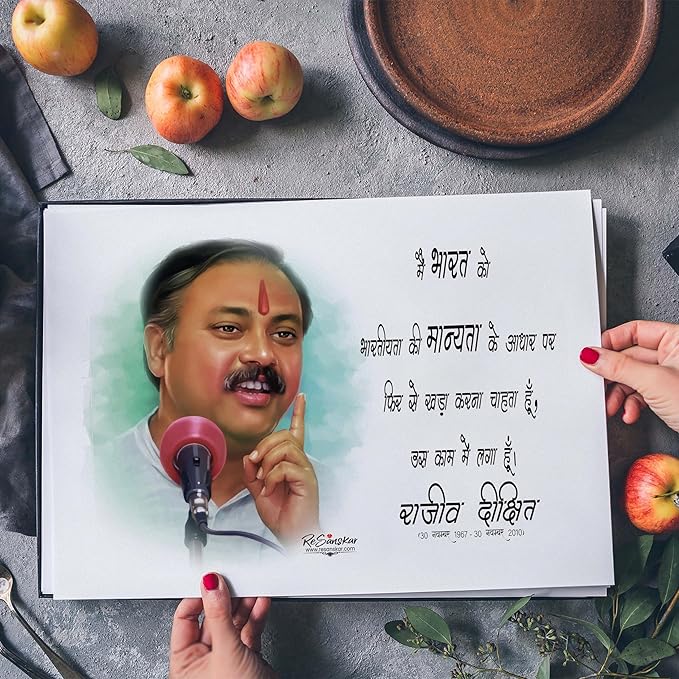 मैं भारत को
भारतीयता की मान्यता के आधार पर
फिर से खड़ा करना चाहता हूँ,
उस काम मैं लगा हूँ।
राजीव दीक्षित
(30 नवम्बर 1967 - 30 नवम्बर 2010)
ReSanskar
www.resanskar.com